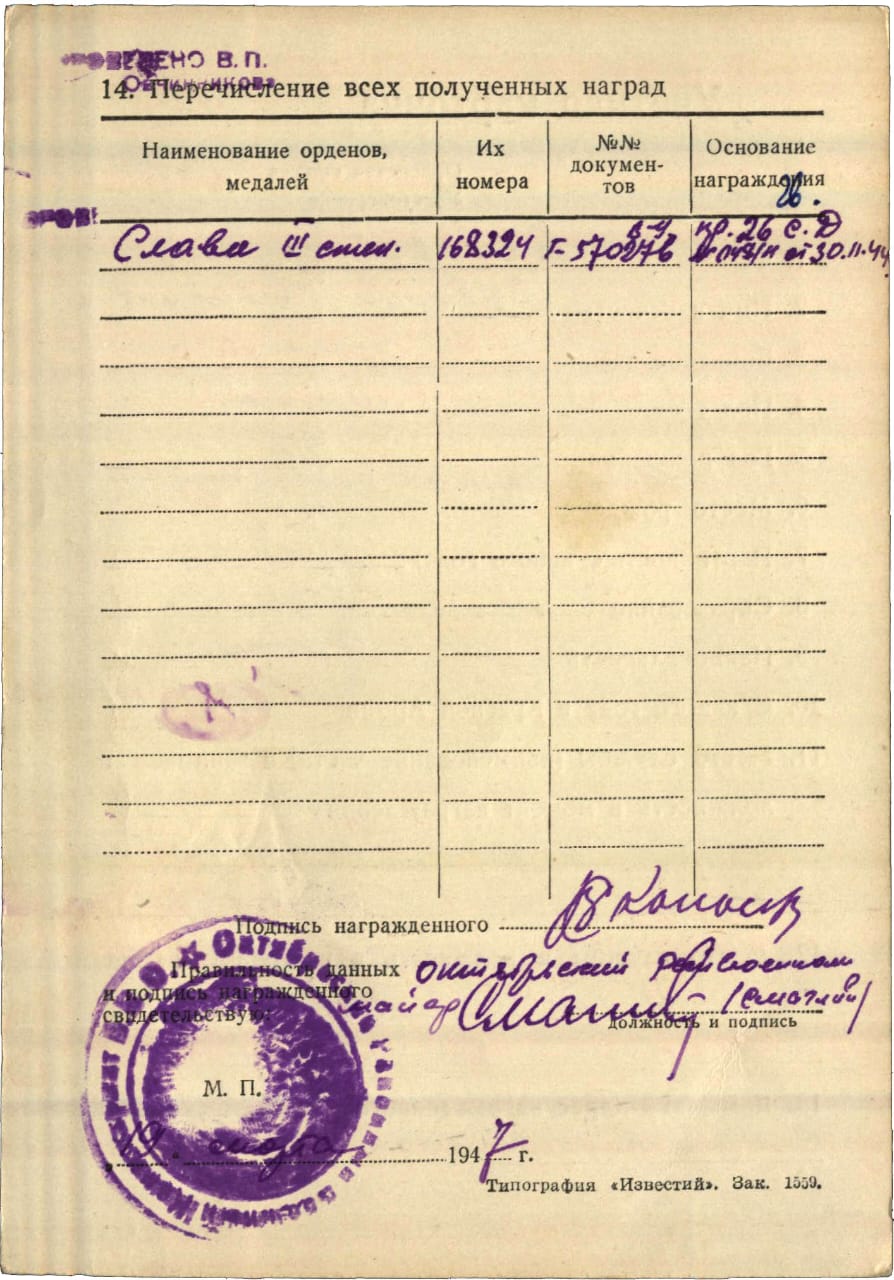 ПРОВЕДЕНО В. П.
Овчинникова
14. Перечисление всех полученных наград
Наименование орденов, медалей
Их номера
№№ документов
Основание награждения
26.
Слава III степ.
168324
Г-570276
пр. 26 С.Д
от 30.11.44
Подпись награжденного
Правильность данных
и подпись награжденного
свидетельствую:
Октябрьский райвоенком
майор
(Смагин)
должность и подпись
М. П.
„19" марта 1947 г.
Типография «Известий». Зак. 1559.